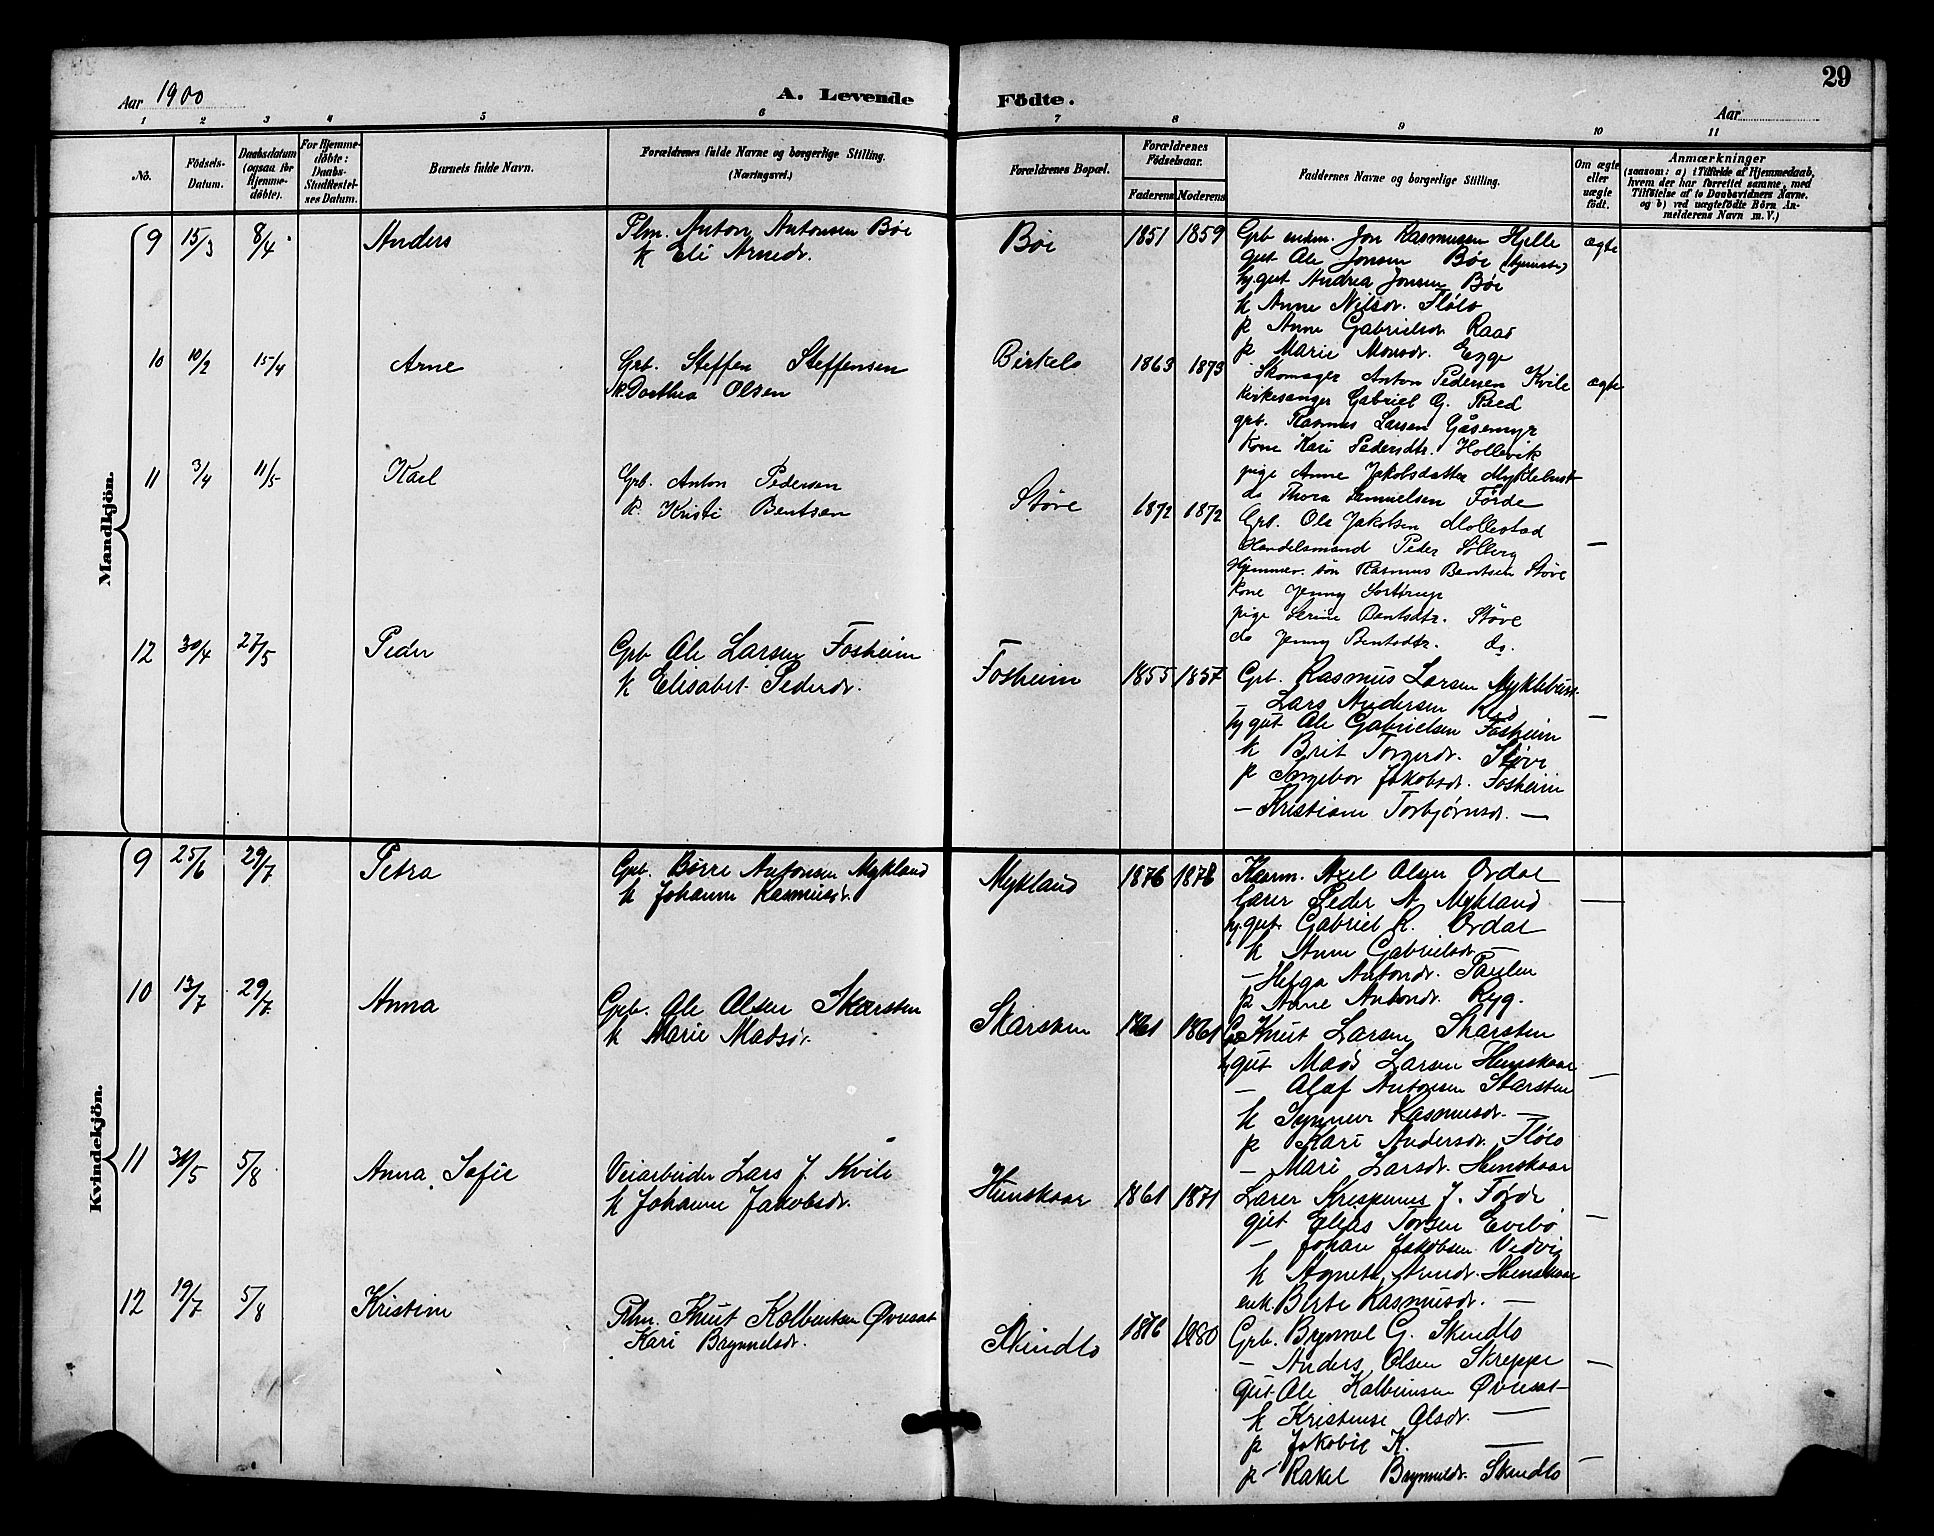 29
Aar 1900
A. Levende
Födte.
Aar
1 2 3 4 5 6 7 8 9 10 11
No.
Födsels-Datum.
Daabsdatum (ogsaa for Hjemmedøbte).
For Hjemmedøbte: Daabs-Stadfæstelses Datum.
Barnets fulde Navn.
Forældrenes fulde Navne og borgerlige Stilling. (Næringsvei.)
Forældrenes Bopæl.
Forældrenes Födselsaar.
Faderens Moderens
Faddernes Navne og borgerlige Stilling.
Om ægte eller uægte født.
Anmærkninger
(saasom: a) i Tilfælde af Hjemmedaab,
hvem der har forrettet samme, med
Tilføielse af to Daabsvidners Navne.
og b) ved uægtefødte Börn An-
melderens Navn m. V.)
Mandkjön.
9 15/3 8/4 Anders
Plm. Anton Antonsen Böe
k Eli Arnedr.
Böe 1851 1859
Grb enkm. Jon Rasmusen Hjelle ægte
gut Ole Jonsen Böe
hj.gut Andrea Jonsen Böe
k Anne Nilsdr. Flölo
p Anne Gabrielsdr Raad
p Marie Monsdr. Egge
10 10/2 15/4 Arne
Grb. Steffen Steffensen
K. Dorthea Olsen
Birkelo 1863 1873
Skomager Anton Pedersen Kvile ægte
Kirkesanger Gabriel G. Reed
grb. Rasmus Larsen Gåsemyr
Kone Kari Pedersdtr. Hollevik
pige Anne Jakobsdatter Myklebust
do Thora Samuelsen Förde
11 3/4 11/5 Karl
Grb. Anton Pedersen
k. Kristi Bentsen
Støve 1872 1872
Grb. Ole Jakobsen Mollestad
Handelsmand Peder Sølberg —
Hjemmev. sön Rasmus Bentsen Støve
Kone Jenny Sortørup
pige Serine Bentsdtr. Støve
do Jenny Bentsdtr. do.
12 30/4 27/5 Peder
Grb Ole Larsen Fosheim
k Elisabet Pedersdr.
Fosheim 1855 1857
Grb. Rasmus Larsen Myklebust
— Lars Andersen —
hj gut Ole Gabrielsen Fosheim
k Brit Torgerdr. Støve
p Ingebor Jakobsdr. Fosheim
— Kristiane Torbjørnsdr. —
Kvindekjön.
9 25/6 29/7 Petra
Grb. Børre Antonsen Mykland
k Johanne Rasmusdr.
Mykland 1876 1878
Kaarm. Axel Olsen Ordal
Lærer Peder A. Mykland —
hj.gut. Gabriel R. Ordal
k Anne Gabrielsdr —
— Helga Antondr. Paulen
p Anne Antondr. Ryg.
10 13/7 29/7 Anna
Grb. Ole Olsen Skarsten
k Marie Madsdr.
Skarsten 1861 1861
Grb Knut Larsen Skarsten
hj gut Mads Larsen Hunskaar
— Olaf Antonsen Skarsten —
k Synneve Rasmusdr. —
p Kari Andersdr. Flölo
— Mari Larsdr. Hunskaar
11 30/5 5/8 Anna Sofie
Veiarbeider Lars J. Kvile
k Johanne Jakobsdr.
Hunskaar 1861 1871
Lærer Krispinus J. Førde
gut Elias Torsen Evebö —
— Johan Jakobsen Vedvig
k Agnete Arnedr. Hunskaar
enk. Berte Rasmusdr. —
12 19/7 5/8 Kristine
Plm. Knut Kolbentsen Øvreset
Kari Brynnelsdr.
Skindlo 1876 1880
Grb. Brynnel G. Skindlo
— Anders Olsen Skreppe —
gut Ole Kolbeinsen Øvreset
k Kristense Olsdr. —
p Jakobie K. —
p — Rakel Brynneldr. Skindlo —